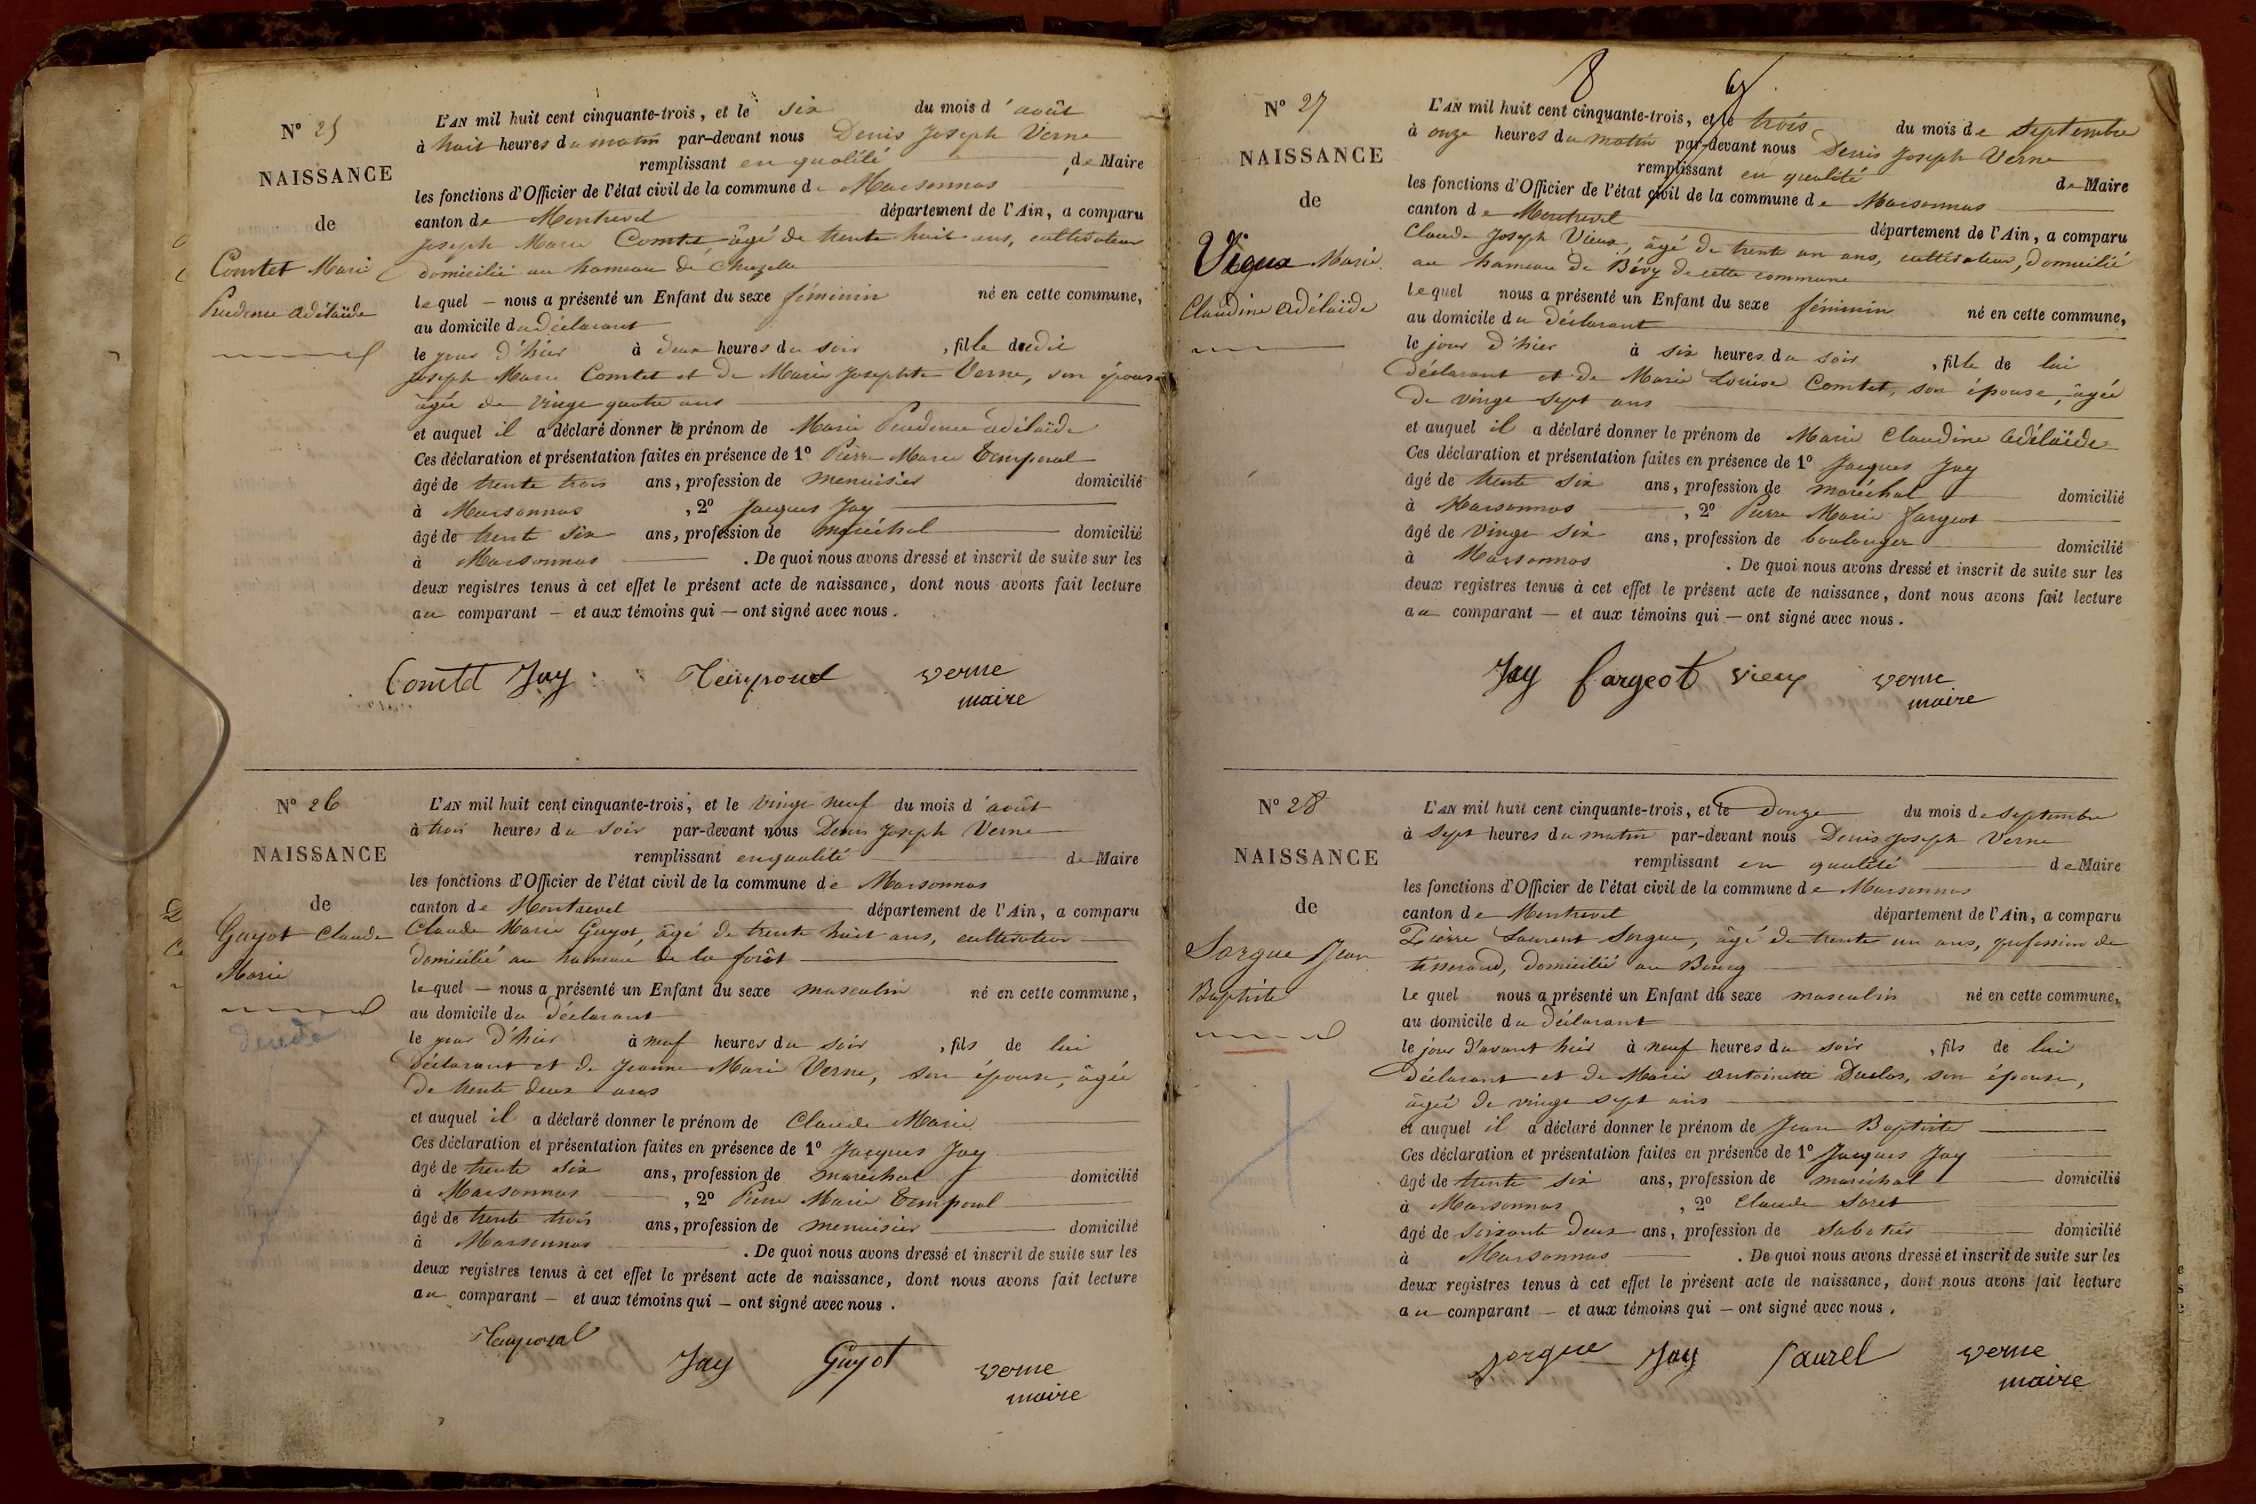 N° 25
NAISSANCE
de
Comtet Marie
Prudence Adélaïde
L'AN mil huit cent cinquante-trois, et le six du mois d'août
à huit heures du matin par-devant nous Denis Joseph Verne
remplissant en qualité de Maire
les fonctions d'Officier de l'état civil de la commune de Marsonnas
canton de Montrevel département de l'Ain, a comparu
Joseph Marie Comtet âgé de trente huit ans, cultivateur
domicilié au hameau de Chazelle
lequel — nous a présenté un Enfant du sexe féminin né en cette commune,
au domicile du déclarant
le jour d'hier à deux heures du soir, fille dudit
Joseph Marie Comtet et de Marie Josephte Verne, son épouse
âgée de vingt quatre ans
et auquel il a déclaré donner le prénom de Marie Prudence adélaïde
Ces déclaration et présentation faites en présence de 1° Pierre Marie Temporal
âgé de trente trois ans, profession de menuisier domicilié
à Marsonnas, 2° Jacques Jay
âgé de trente six ans, profession de maréchal domicilié
à Marsonnas. De quoi nous avons dressé et inscrit de suite sur les
deux registres tenus à cet effet le présent acte de naissance, dont nous avons fait lecture
au comparant — et aux témoins qui — ont signé avec nous.
Comtet Jay Temporal verne
maire
N° 26
NAISSANCE
de
Guyot Claude
Marie
L'AN mil huit cent cinquante-trois, et le vingt neuf du mois d'août
à trois heures du soir par-devant nous Denis Joseph Verne
remplissant en qualité de Maire
les fonctions d'Officier de l'état civil de la commune de Marsonnas
canton de Montrevel département de l'Ain, a comparu
Claude Marie Guyot, âgé de trente huit ans, cultivateur
domicilié au hameau de la forêt
lequel — nous a présenté un Enfant du sexe masculin né en cette commune,
au domicile du déclarant
le jour d'hier à neuf heures du soir, fils de lui
déclarant et de Jeanne Marie Verne, son épouse, âgée
de trente deux ans
et auquel il a déclaré donner le prénom de Claude Marie
Ces déclaration et présentation faites en présence de 1° Jacques Jay
âgé de trente six ans, profession de maréchal domicilié
à Marsonnas, 2° Pierre Marie Temporal
âgé de trente trois ans, profession de menuisier domicilié
à Marsonnas. De quoi nous avons dressé et inscrit de suite sur les
deux registres tenus à cet effet le présent acte de naissance, dont nous avons fait lecture
au comparant — et aux témoins qui — ont signé avec nous.
Temporal Jay Guyot verne
maire
N° 27
NAISSANCE
de
Vieux Marie
Claudine Adélaïde
L'AN mil huit cent cinquante-trois, et le trois du mois de Septembre
à onze heures du matin par-devant nous Denis Joseph Verne
remplissant en qualité de Maire
les fonctions d'Officier de l'état civil de la commune de Marsonnas
canton de Montrevel département de l'Ain, a comparu
Claude Joseph Vieux, âgé de trente un ans, cultivateur, domicilié
au hameau de Bévy de cette commune
lequel nous a présenté un Enfant du sexe féminin né en cette commune,
au domicile du déclarant
le jour d'hier à six heures du soir, fille de lui
déclarant et de Marie Louise Comtet, son épouse, âgée
de vingt sept ans
et auquel il a déclaré donner le prénom de Marie Claudine adélaïde
Ces déclaration et présentation faites en présence de 1° Jacques Jay
âgé de trente six ans, profession de maréchal domicilié
à Marsonnas, 2° Pierre Marie Fargeot
âgé de vingt six ans, profession de boulanger domicilié
à Marsonnas. De quoi nous avons dressé et inscrit de suite sur les
deux registres tenus à cet effet le présent acte de naissance, dont nous avons fait lecture
au comparant — et aux témoins qui — ont signé avec nous.
Jay fargeot vieux verne
maire
N° 28
NAISSANCE
de
Sorgue Jean
Baptiste
L'AN mil huit cent cinquante-trois, et le Douze du mois de septembre
à sept heures du matin par-devant nous Denis Joseph Verne
remplissant en qualité de Maire
les fonctions d'Officier de l'état civil de la commune de Marsonnas
canton de Montrevel département de l'Ain, a comparu
Pierre Laurent Sorgue, âgé de trente un ans, profession de
tisserand, domicilié au Bourg
lequel nous a présenté un Enfant du sexe masculin né en cette commune,
au domicile du déclarant
le jour d'avant hier à neuf heures du soir, fils de lui
déclarant et de Marie Antoinette Duclos, son épouse,
âgée de vingt sept ans
et auquel il a déclaré donner le prénom de Jean Baptiste
Ces déclaration et présentation faites en présence de 1° Jacques Jay
âgé de trente six ans, profession de maréchal domicilié
à Marsonnas, 2° Claude
âgé de soixante deux ans, profession de Sabotier domicilié
à Marsonnas. De quoi nous avons dressé et inscrit de suite sur les
deux registres tenus à cet effet le présent acte de naissance, dont nous avons fait lecture
au comparant — et aux témoins qui — ont signé avec nous.
Sorgue Jay verne
maire